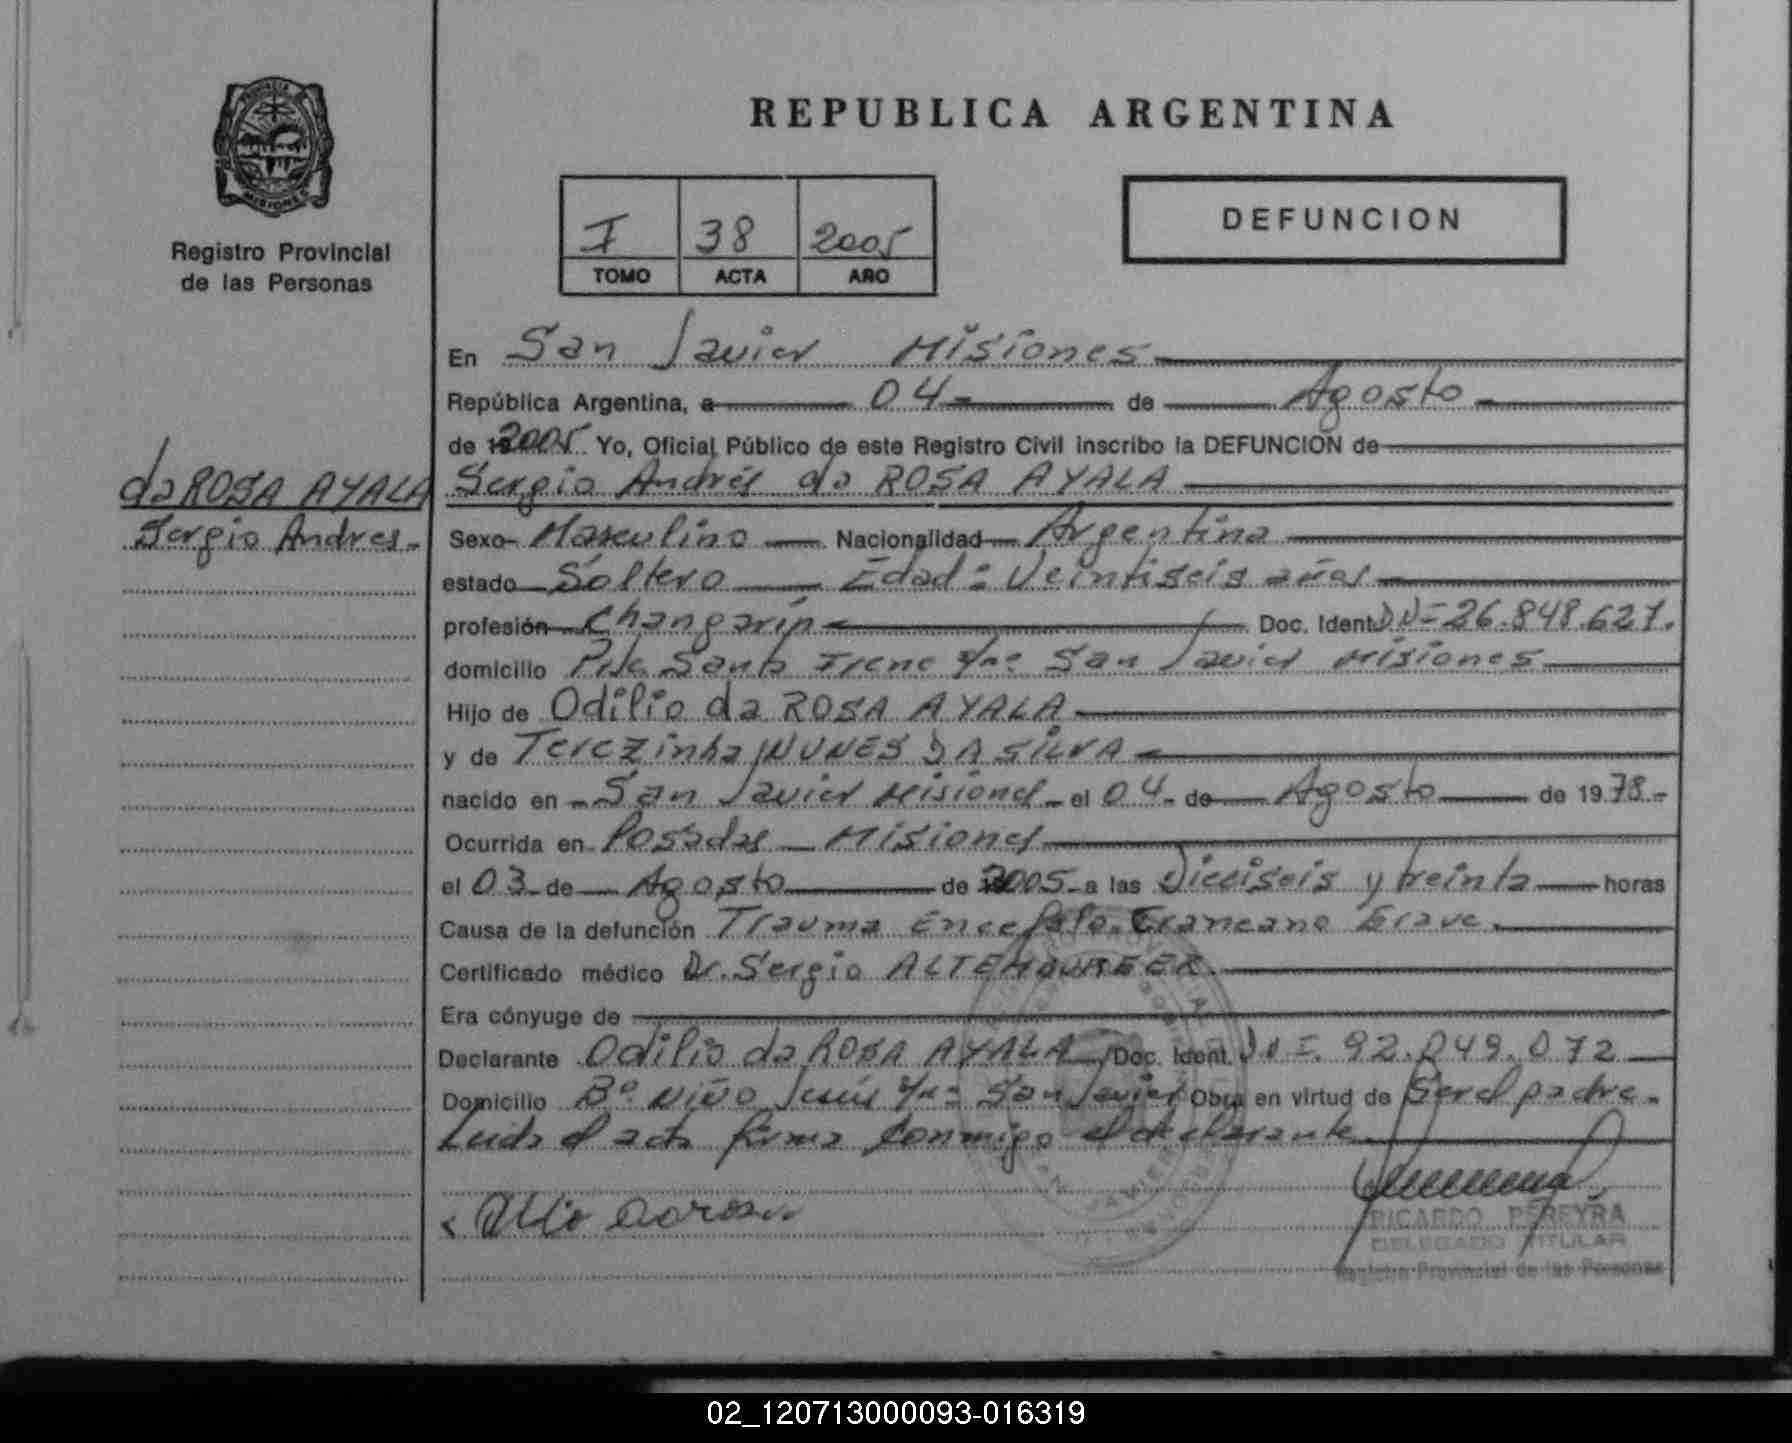 PROVINCIA DE
MISIONES
Registro Provincial
de las Personas
REPUBLICA ARGENTINA
I 38 2005
TOMO ACTA AÑO
DEFUNCION
da ROSA AYALA
Sergio Andres.
En San Javier Misiones
República Argentina, a 04 de Agosto
de 2005 Yo, Oficial Público de este Registro Civil inscribo la DEFUNCION de
Sergio Andrés da ROSA AYALA
Sexo Masculino Nacionalidad Argentina
estado Soltero Edad: Veintiseis años
profesión Changarín Doc. Ident. 26.848.627.
domicilio Santa Irene San Javier Misiones
Hijo de Odilio da ROSA AYALA
y de Terezinha NUNES DA SILVA
nacido en San Javier Misiones el 04 de Agosto de 1978
Ocurrida en Posadas Misiones
el 03 de Agosto de 2005 a las Dieciseis y treinta horas
Causa de la defunción Trauma Encefalo Craneano Grave.
Certificado médico Dr. Sergio
Era cónyuge de
Declarante Odilio da ROSA AYALA Doc. Ident. 92.049.072
Domicilio Bº Niño Jesús San Javier Obra en virtud de Ser el padre.
Leida el acta firma conmigo el declarante
RICARDO PEREYRA
DELEGADO TITULAR
Registro Provincial de las Personas
02_120713000093-016319